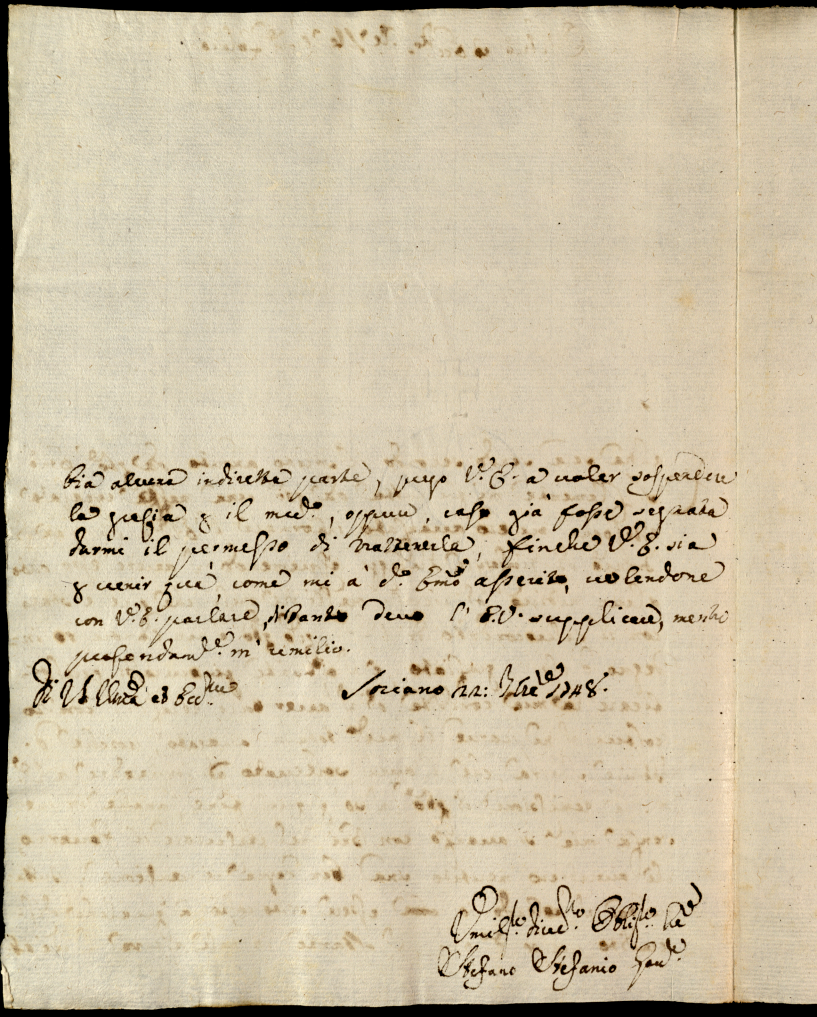 bia alcuna indiretta parte, prego V.ra E. a voler sospendere
la grazia p il med.o, oppure, caso già fosse segnata
darmi il permesso di trattenerla, finche V.ra E. sia
p venir quà, come mi à d.o Emo asserito, volendone
con V.ra E. parlare, di tanto devo l' E.V. supplicare, mentre
profondam.te m' umilio.
Di V Emza ed Ecc.za Soriano 22: 1748.
Umil.mo Obblig.mo
Stefano Stefanio